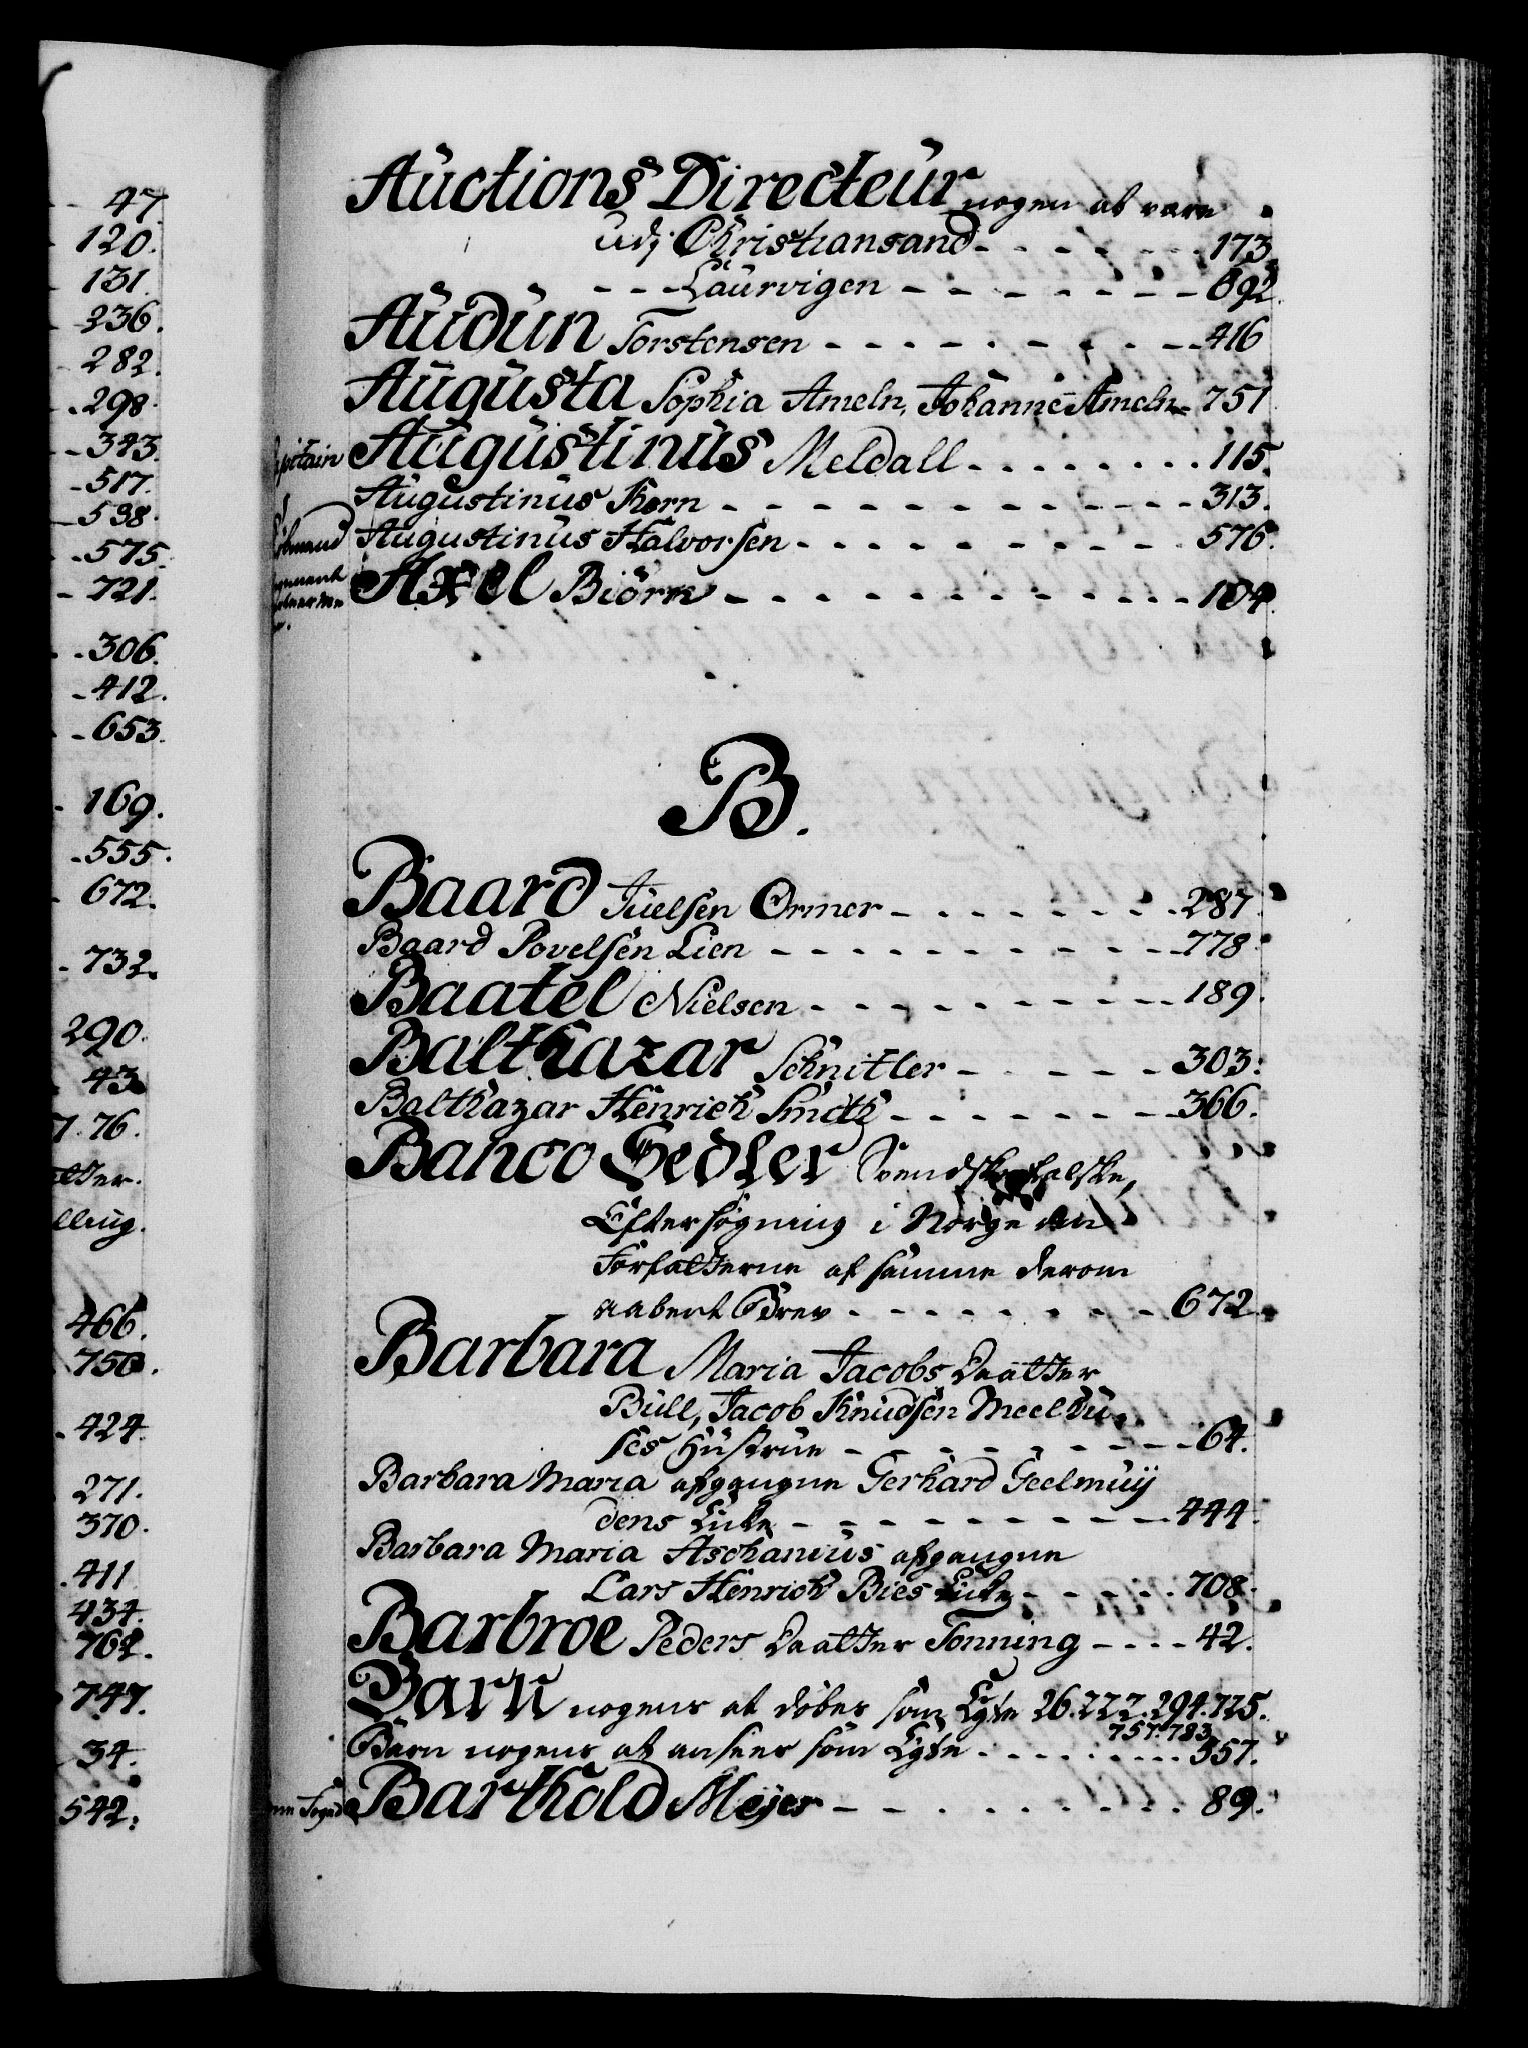 47
120.
131.
236.
282.
298.
343.
517.
538.
575.
721.
306.
412.
653.
169.
555.
672.
732.
290.
43
7. 76.
466.
750.
424.
271.
370.
411
434.
762.
747.
34.
542.
Auctions Directeur nogen at være
udj Christiansand - - - - - - 173.
- - - Laurvigen - - - - - - - 692.
Audun Torstensen - - - - - - - - - 416
Augusta Sophia Ameln, Johanne Ameln - 751
Capitain Augustinus Meldall - - - - - - - - 115.
Augustinus Korn - - - - - - - - - - - - 313.
Augustinus Halvorsen - - - - - - - - - - 576.
Axel Biörn - - - - - - - - - - - - 104.
B.
Baard Juelsen Ormer - - - - - - - - 287.
Baard Povelsen Lien - - - - - - - - - - - 778.
Baatel Nielsen - - - - - - - - - - 189.
Balthazar Schnitler - - - - - - 303.
Balthazar Henrich Smith - - - - - - - - 366.
Banco Sedler Svendske falske,
Eftersøgning i Norge om
Forfatterne af samme derom
aabent Brev - - - - - - - - 672.
Barbara Maria Jacobs Daatter
Bull, Jacob Knudsen Meelhu-
ses Hustrue - - - - - - - - - 64.
Barbara Maria afgangne Gerhard Geelmuij
dens Enke - - - - - - - - - - 444.
Barbara Maria Aschanius afgangne
Lars Henrich Bies Enke - - - - - 708.
Barbroe Peders Daatter Tonning - - - - 42.
Barn nogens at døbes som Egte 26. 222. 294. 725.
757. 783.
Barn nogens at ansees som Egte - - - - - - - 357.
Barthold Mejer - - - - - - - - - - 89.